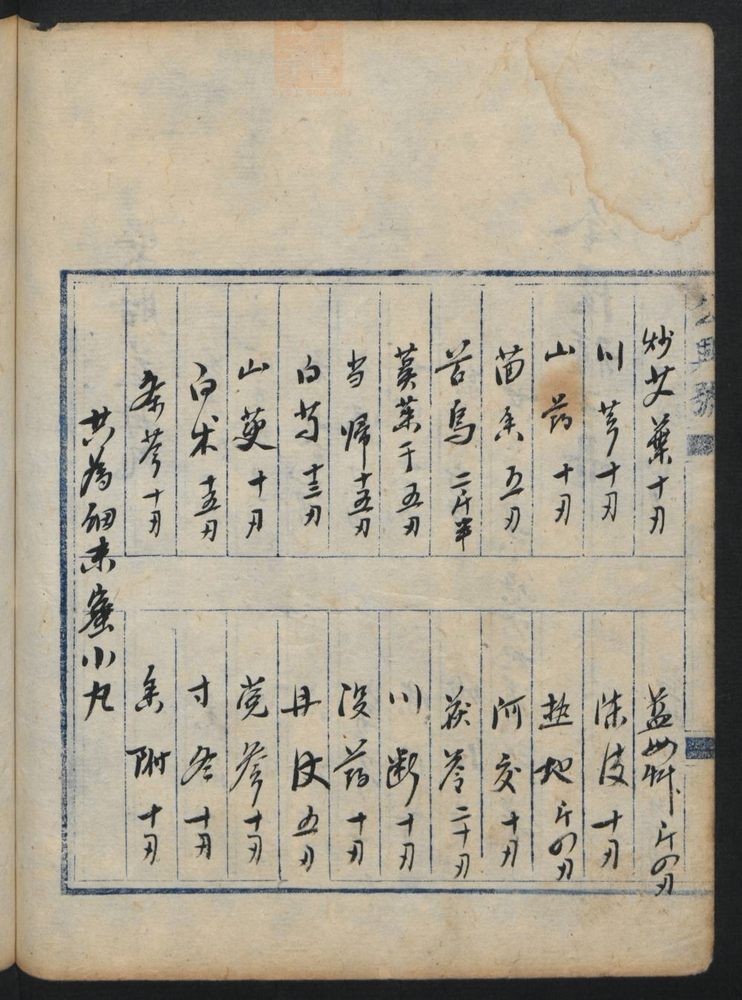 炒艾葉十刄
川芎十刄
山药十刄
茴香五刄
烏二斤半
葉子五刄
当帰十五刄
白芍十三刄
山萸十刄
白术十五刄
条芩十刄
益母艸斤四刄
陳皮十刄
熟地斤四刄
阿交十刄
茯苓二十刄
川断十刄
没药十刄
丹皮五刄
党参十刄
寸冬十刄
香附十刄
共為細末蜜小丸